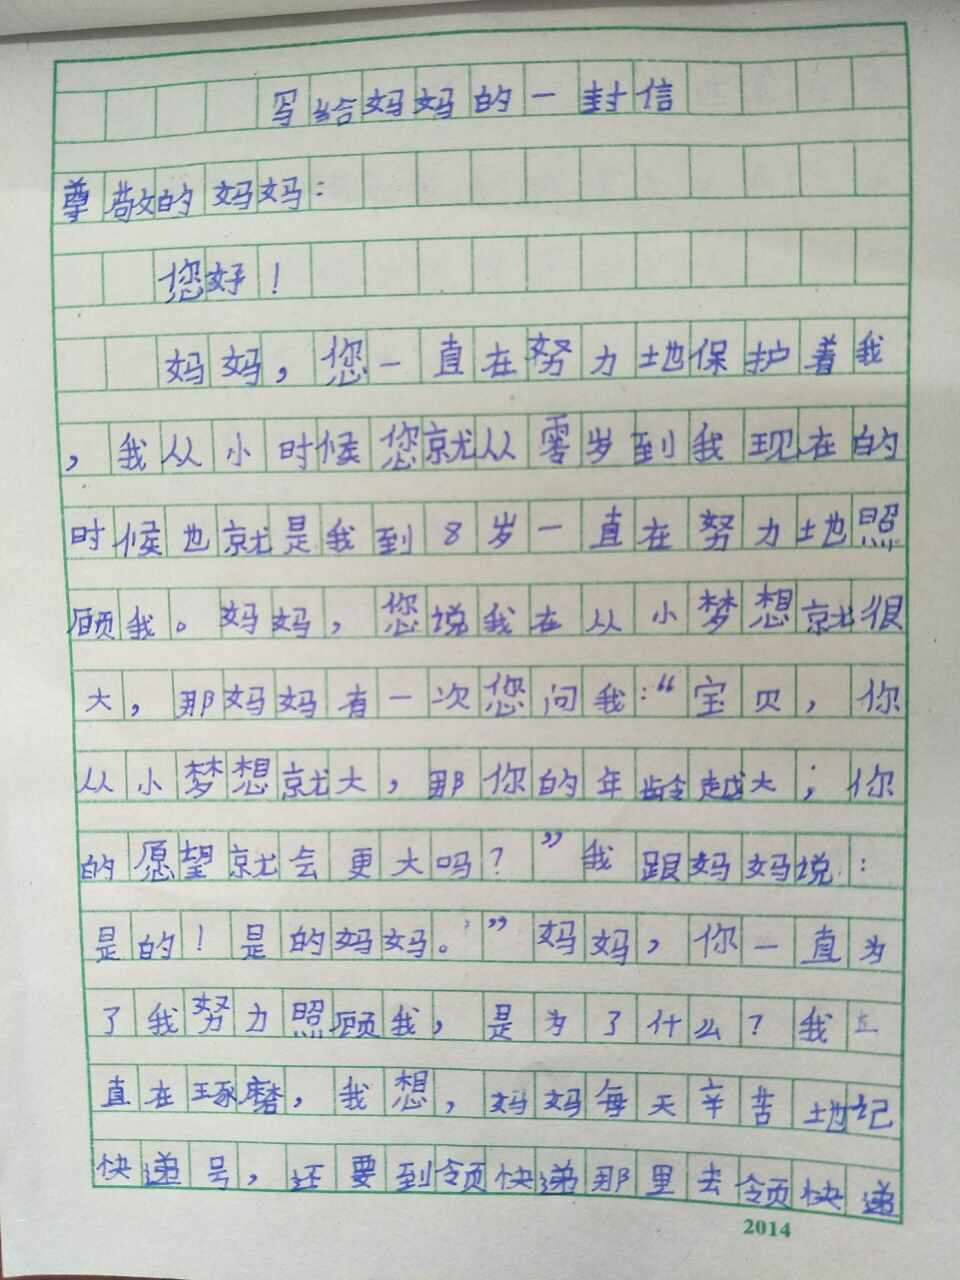 写给妈妈的一封信
尊敬的妈妈：
您好！
妈妈，您一直在努力地保护着我
，我从小时候您就从零岁到我现在的
时候也就是我到8岁一直在努力地照
顾我。妈妈，您说我在从小梦想就很
大，那妈妈有一次您问我：“宝贝，你
从小梦想就大，那你的年龄越大；你
的愿望就会更大吗？”我跟妈妈说：
是的！是的妈妈。”妈妈，你一直为
了我努力照顾我，是为了什么？我
直在琢磨，我想，妈妈每天辛苦地记
快递号，还要到领快递那里去领快递
2014